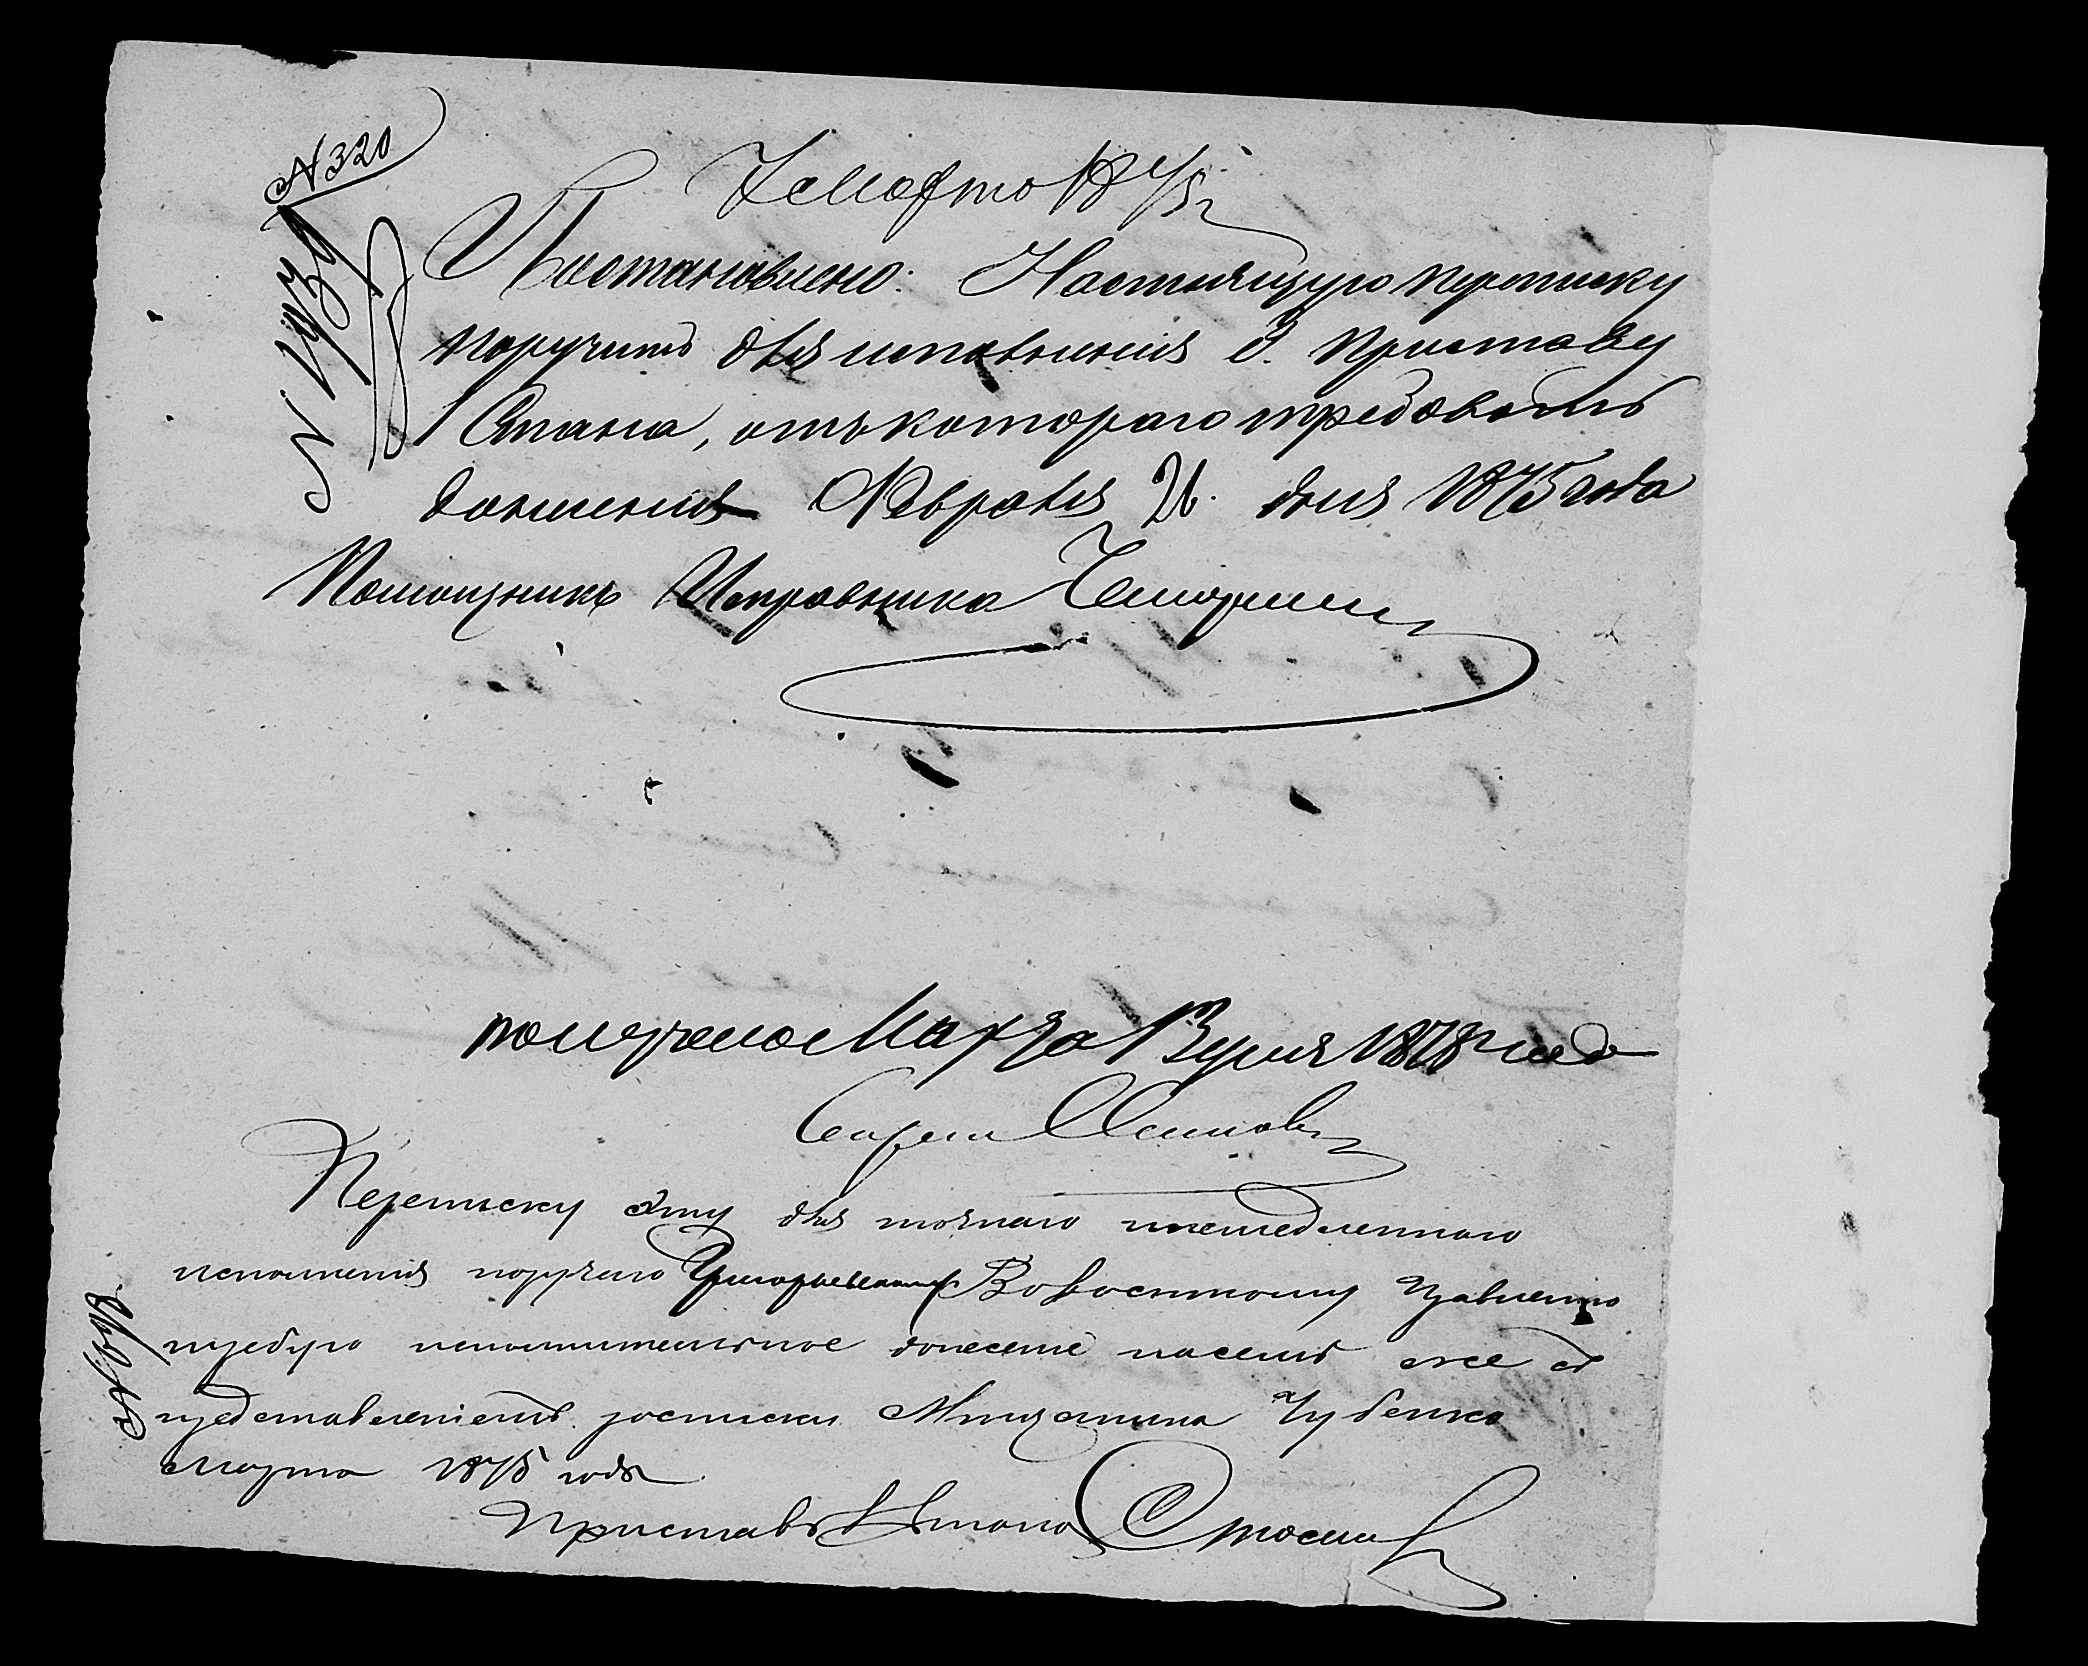 № 320
№ 1937
7 Марта 1875 г
Постановлено: Настоящую переписку
поручить для исполненія Г. Приставу
1 Стана, отъ котораго требовать
донесенія Февраля 26. дня 1875 года
Помощникъ Исправника
получено Марта 13 дня 1875 года
Переписку эту для точнаго и немедленнаго
исполненія поручаю Григорьевскому Волостному Правленію
требую исполнительное донесеніе
представленіемъ росписки Мѣщанина Чубенко
Марта 1875 года
Приставъ 1 Стана